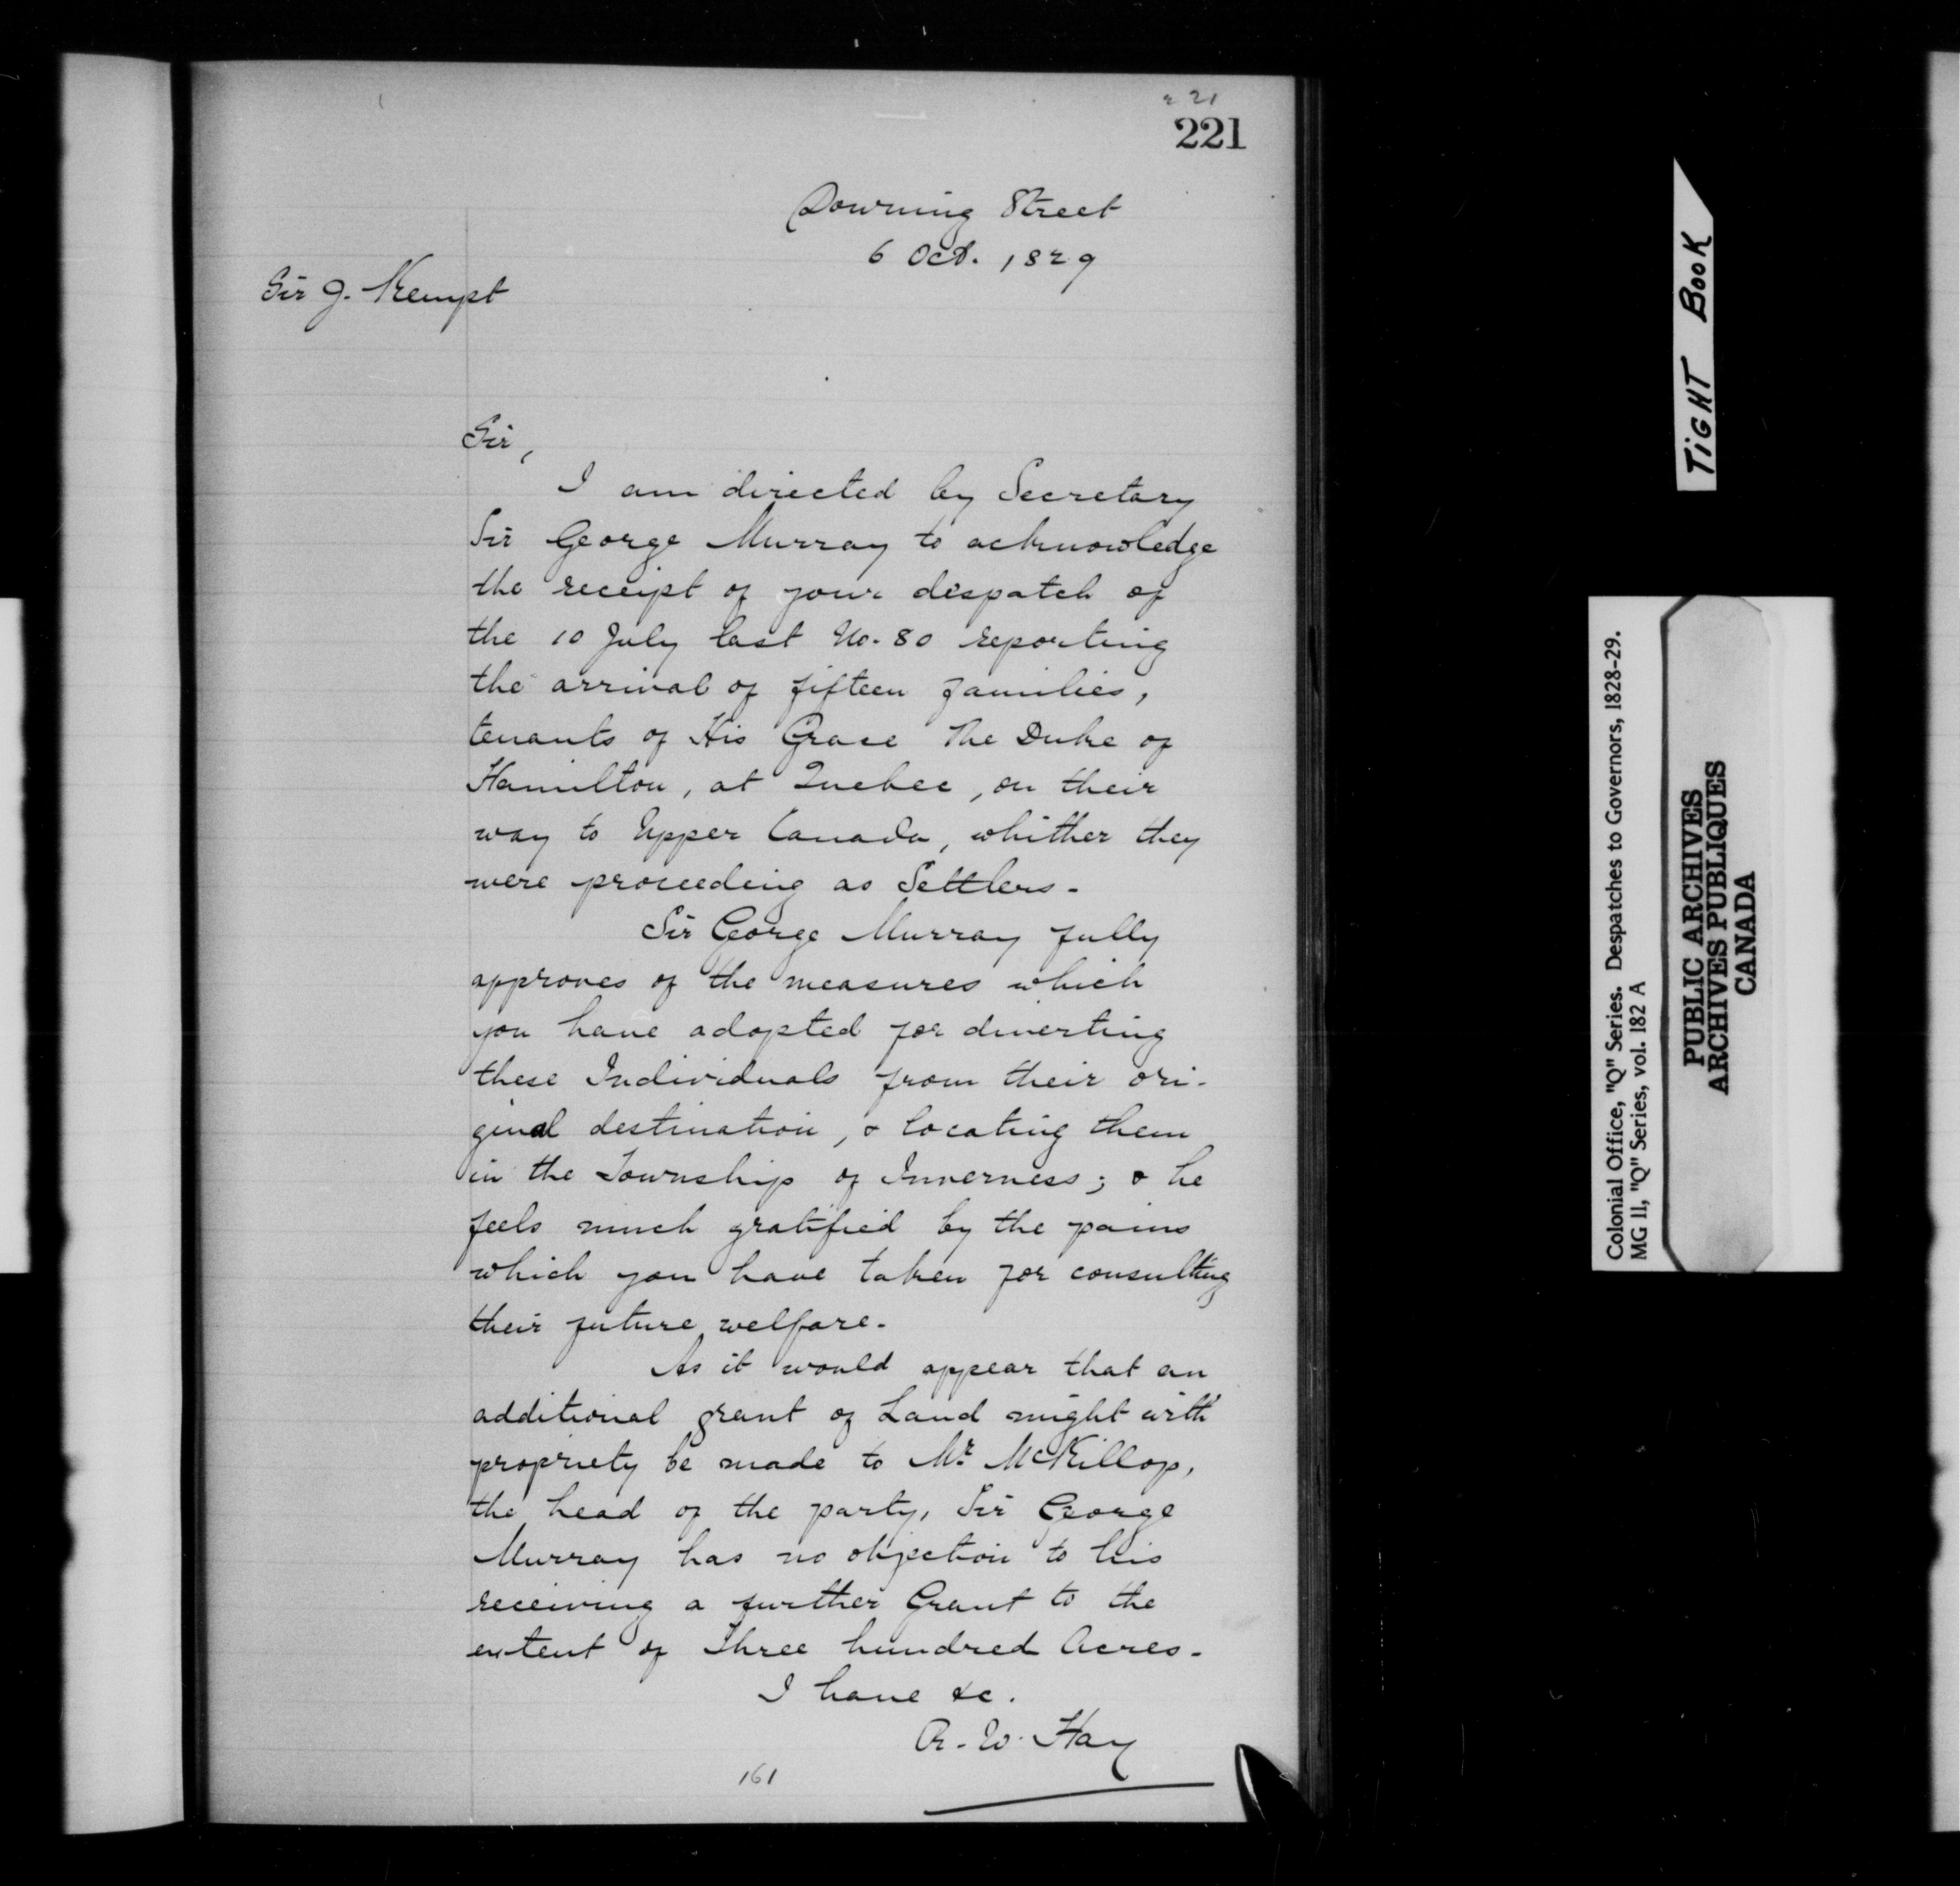 221
221
Downing Street
6 Oct. 1829
Sir J. Kempt
Sir,
I am directed by Secretary
Sir George Murray to acknowledge
the receipt of your despatch of
the 10 July last No. 80 reporting
the arrival of fifteen families,
tenants of His Grace The Duke of
Hamilton, at Quebec, on their
way to Upper Canada, whither they
were proceeding as Settlers.
Sir George Murray fully
approves of the measures which
you have adopted for diverting
these Individuals from their ori-
ginal destination, & locating them
in the Township of Inverness; & he
feels much gratified by the pains
which you have taken for consulting
their future welfare.
As it would appear that an
additional grant of Land might with
propriety be made to Mr. McKillop,
the head of the party, Sir George
Murray has no objection to his
receiving a further Grant to the
extent of Three hundred Acres.
I have &c.
R. W. Hay
161
TIGHT BOOK
Colonial Office, "Q" Series. Despatches to Governors, 1828-29.
MG 11, "Q" Series, vol. 182 A
PUBLIC ARCHIVES
ARCHIVES PUBLIQUES
CANADA